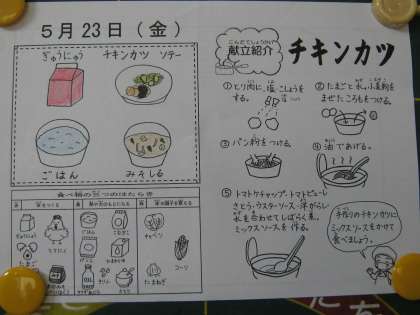 ５月23日（金）
ぎゅうにゅう
チキンカツ ソテー
ごはん
みそしる
献立紹介
チキンカツ
①とり肉に、塩、こしょうをする。
②たまごと水、小麦粉をまぜたころもをつける。
③パン粉をつける。
④油であげる。
⑤トマトケチャップ・トマトピューレ
さとう・ウスターソース・洋がらし
水を合わせてしばらく煮、
ミックスソースを作る。
手作りのチキンカツに
ミックスソースをかけて
食べましょう。
とりにく
たまご
ごはん
こむぎこ
パンこ
さとう
キャベツ
たまねぎ
コーン